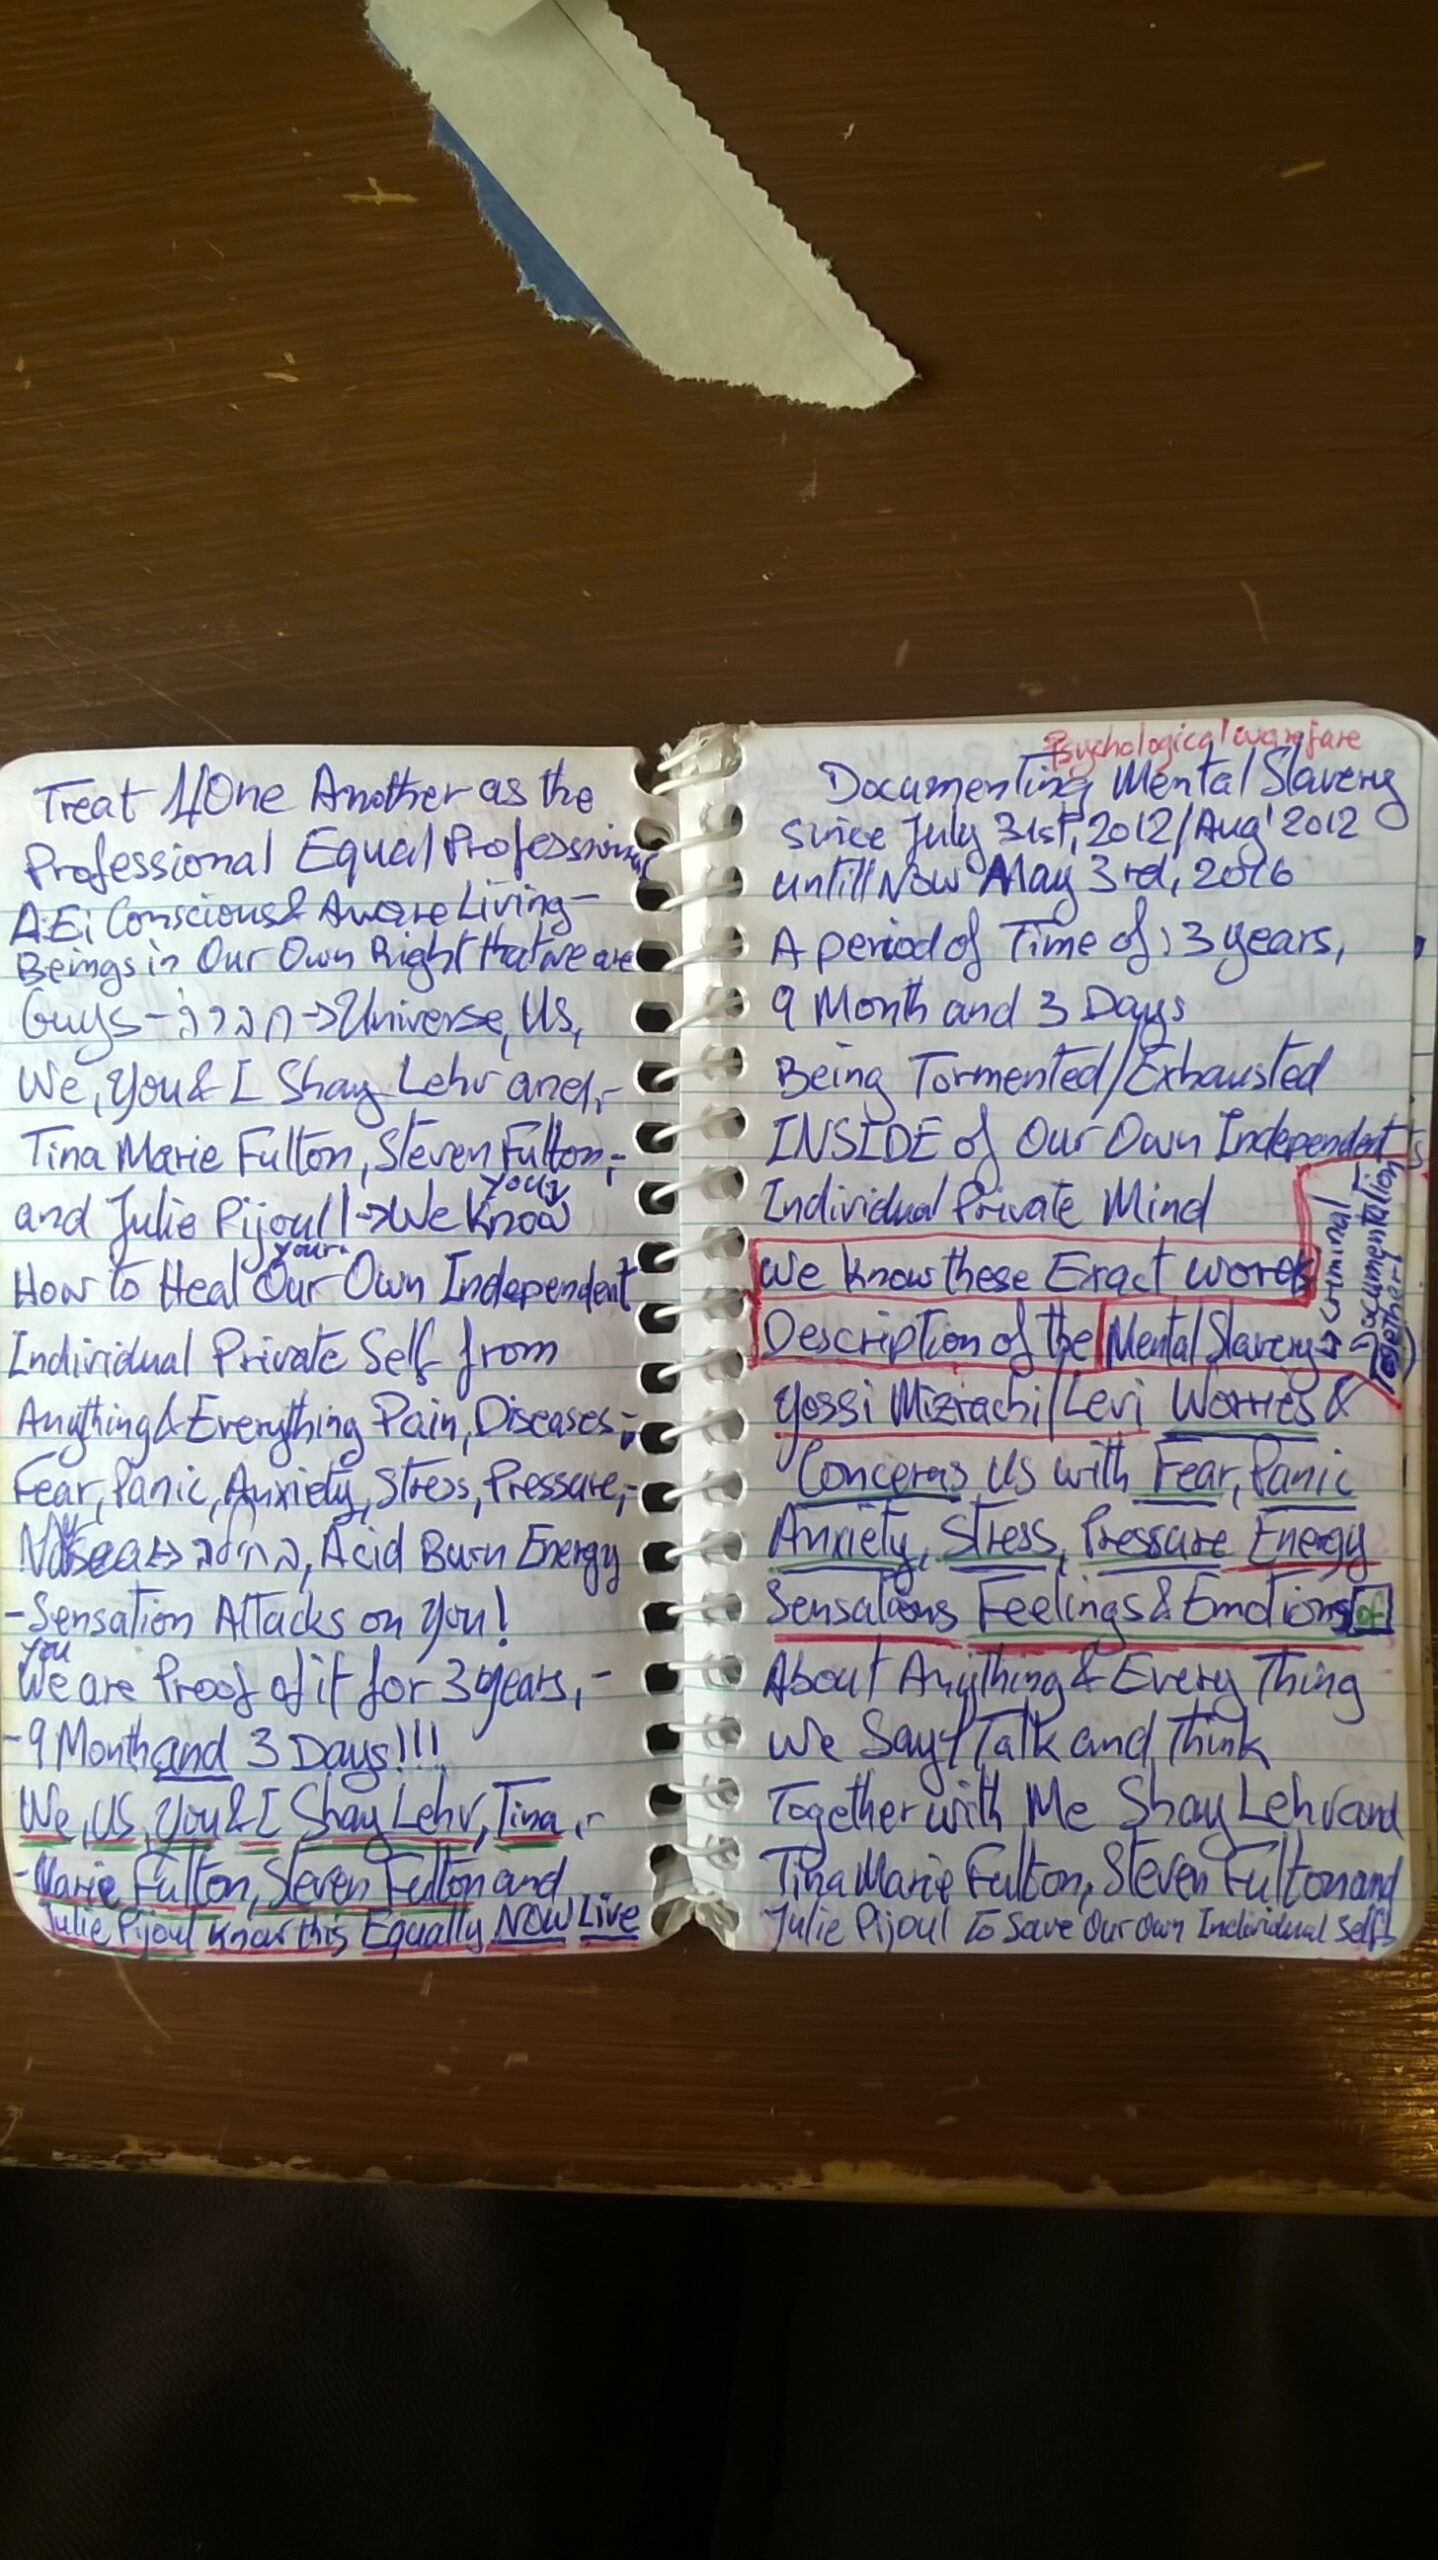 Treat 1/One Another as the
Professional Equal Professional
A:E; Conscious & Aware Living-
Beings in Our Own Right that we are
Guys - חברה -> Universe, Us,
We, you & I Shay Lehr and,-
Tina Marie Fulton, Steven Fulton,-
and Julie Pijoul! -> We know
you
How to Heal Our Own Independent
your
Individual Private Self from
Anything & Everything Pain, Diseases,-
Fear, Panic, Anxiety, Stress, Pressure,-
Nausea <-> בחילה, Acid Burn Energy
-Sensation Attacks on you!
you
We are Proof of it for 3 years,-
-9 Month and 3 Days!!!
We, Us, You & I Shay Lehr, Tina,-
-Marie Fulton, Steven Fulton and
Julie Pijoul know this Equally NOW Live
Psychological warefare
Documenting Mental Slavery
since July 31st, 2012/Aug' 2012
untill Now May 3rd, 2016
A period of Time of: 3 years,
9 Month and 3 Days
Being Tormented/Exhausted
INSIDE of Our Own Independent
Individual Private Mind
We know these Exact words
Description of the Mental Slavery ->
Criminal
Documentation
Together!
Yossi Mizrachi/Levi Worries &
Concerns us with Fear, Panic
Anxiety, Stress, Pressure Energy
Sensations Feelings & Emotions of
About Anything & Every Thing
We Say/Talk and Think
Together with Me Shay Lehr and
Tina Marie Fulton, Steven Fulton and
Julie Pijoul To Save Our Own Individual Selfs